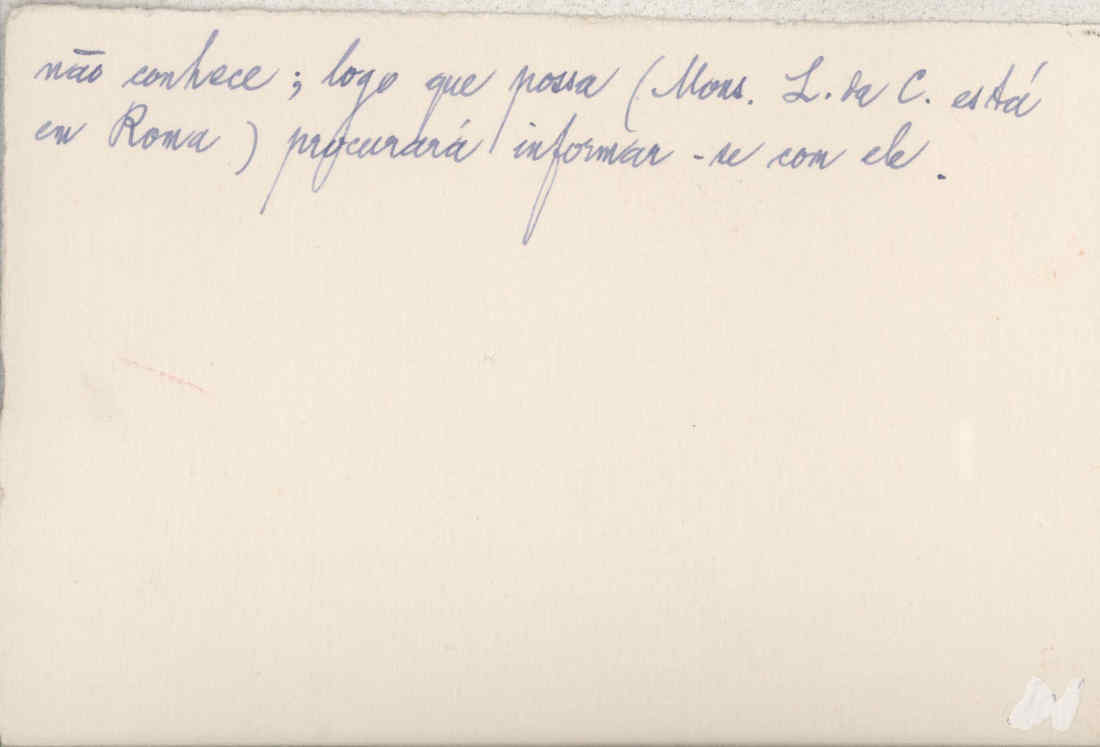 não conhece; logo que possa (Mons. L. da C. está
em Roma) procurará informar-se com ele.